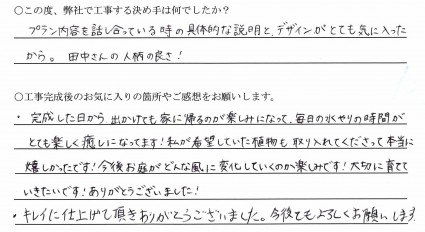 ○この度、弊社で工事する決め手は何でしたか?
プラン内容を話し合っている時の具体的な説明と、デザインがとても気に入った
から。田中さんの人柄の良さ!
○工事完成後のお気に入りの箇所やご感想をお願いします。
・完成した日から、出かけても家に帰るのが楽しみになって、毎日の水やりの時間が
とても楽しく癒しになってます!私が希望していた植物も取り入れてくださって本当に
嬉しかったです!今後お庭がどんな風に変化していくのか楽しみです!大切に育てて
いきたいです!ありがとうございました!
・キレイに仕上げて頂きありがとうございました。今後ともよろしくお願いします